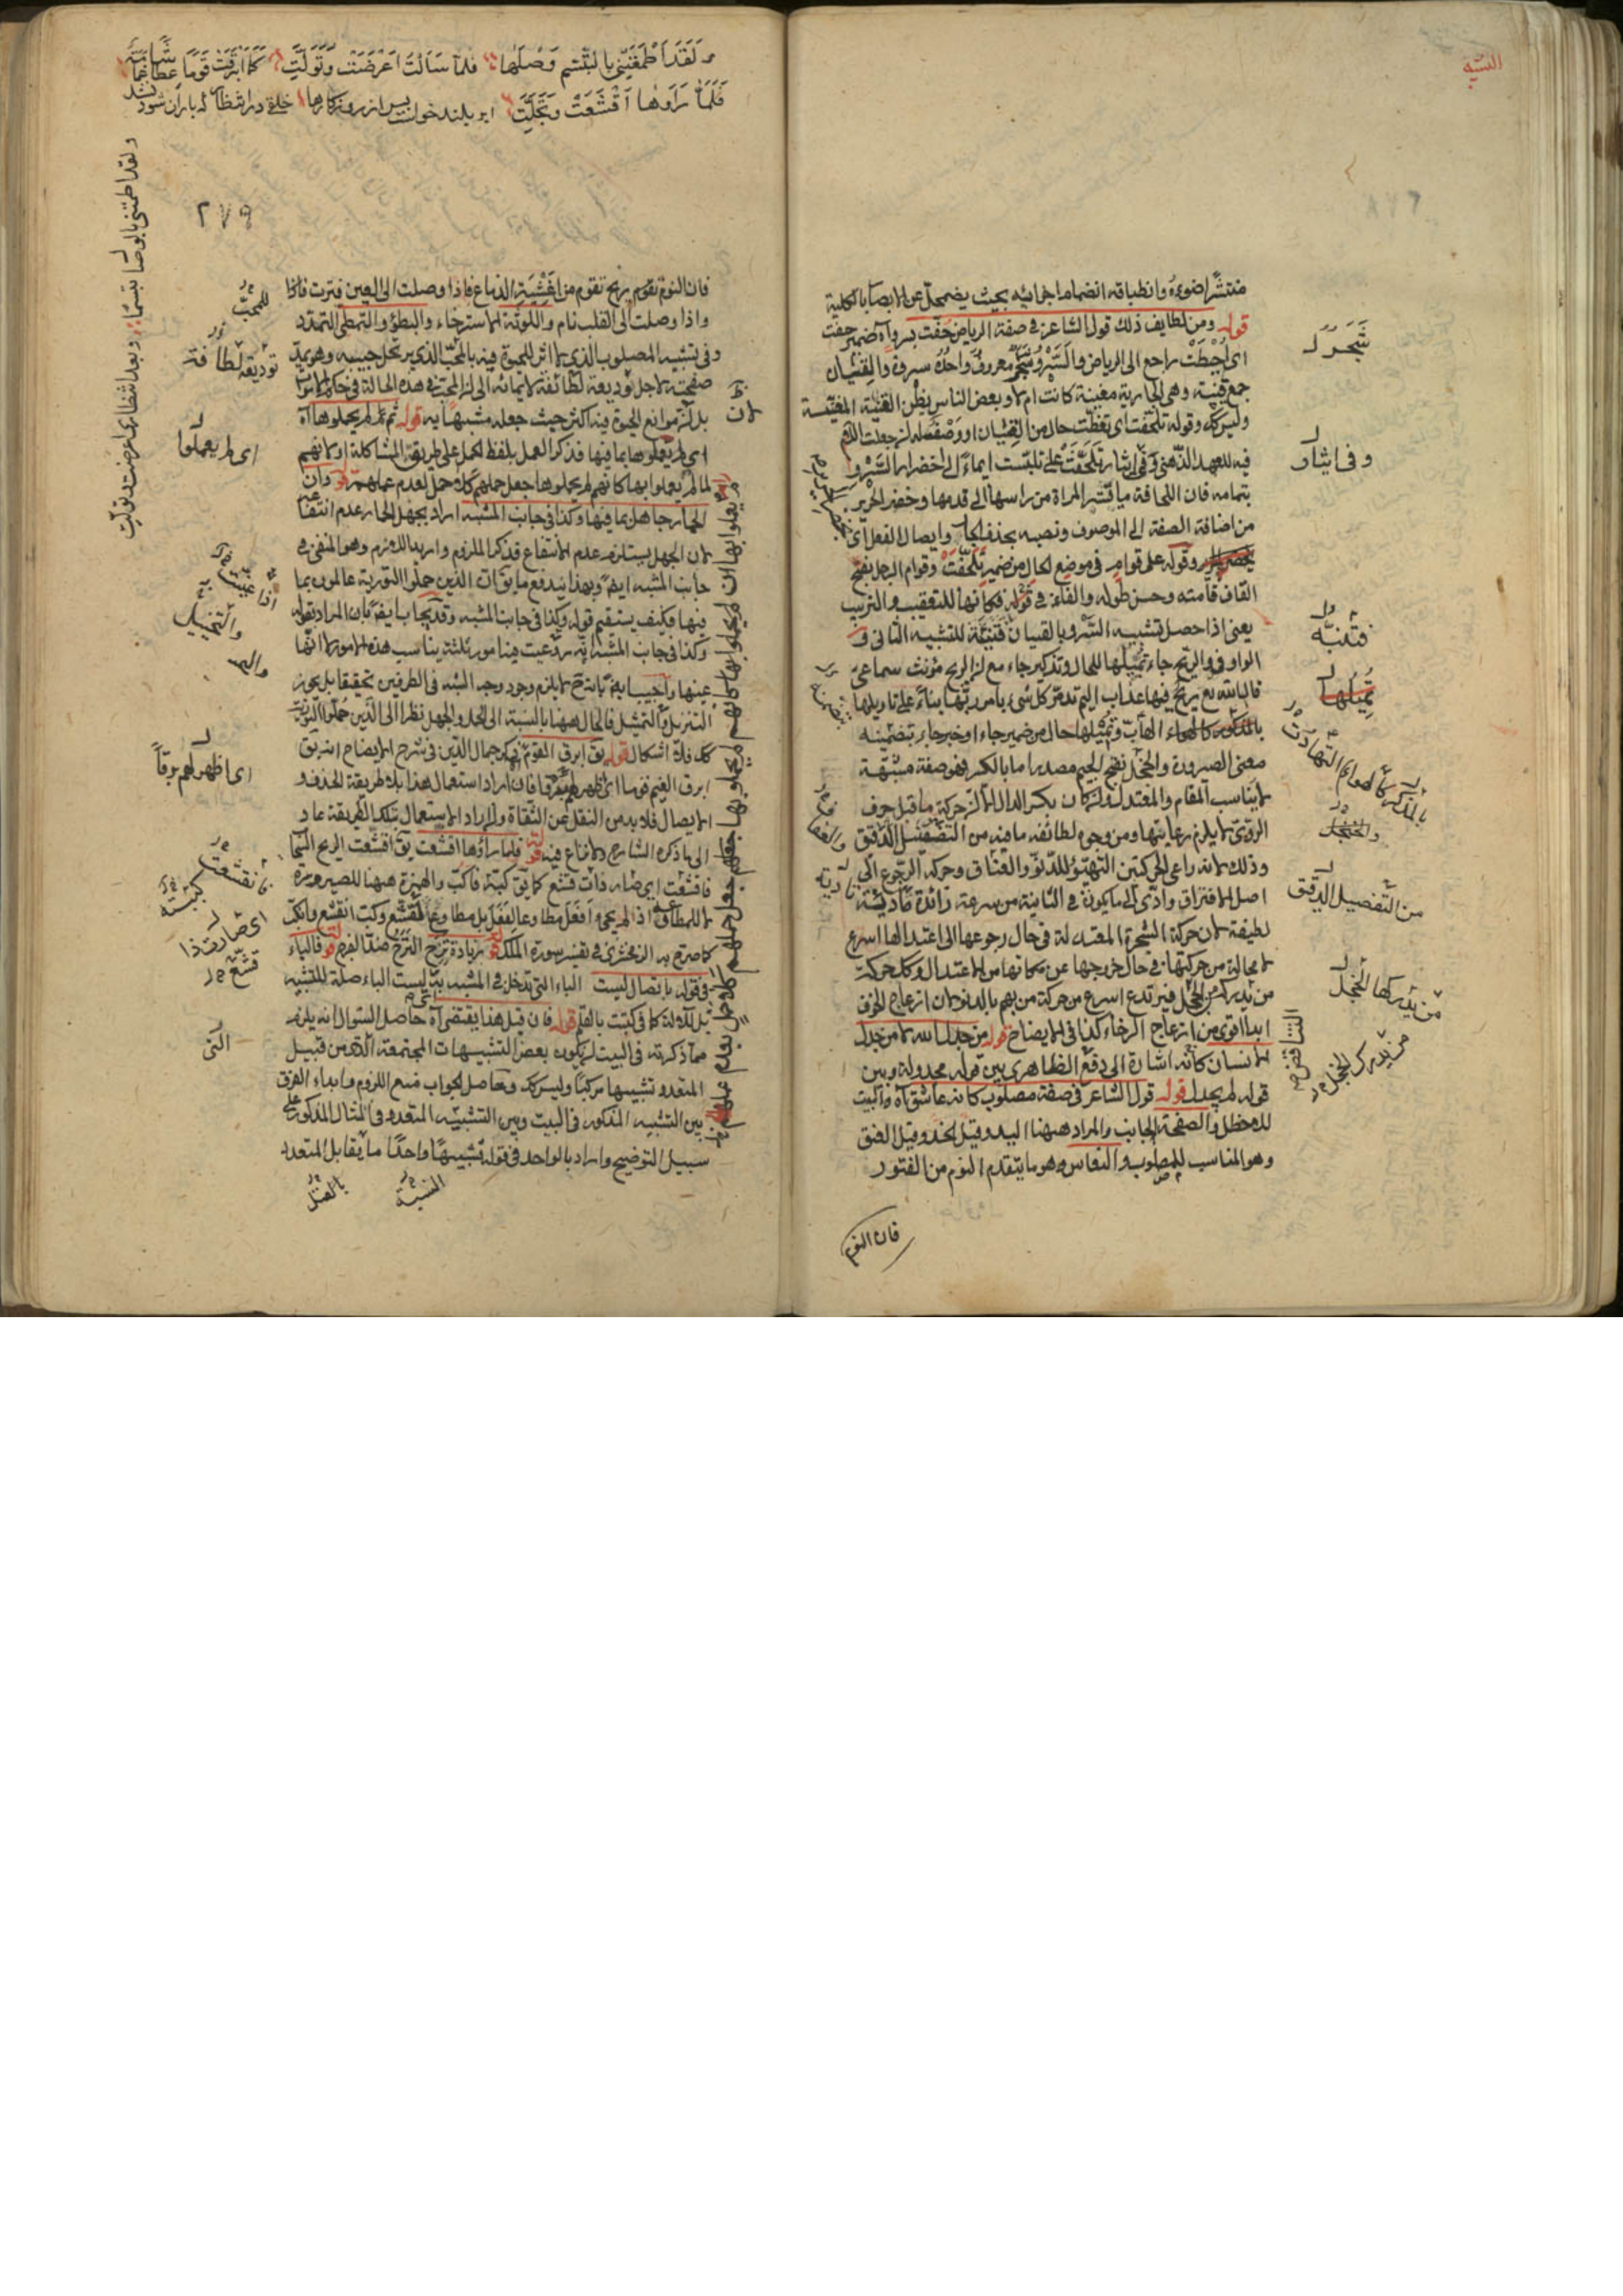 التشبيه
منتشرا ضوءه وانطباقه انضمام اجزائه بحيث يضمحل عن الابصار بالكلية
قوله ومن لطايف ذلك قول الشاعر في صفة الرياض حفت بسرو آه ضمير حفت
اى احيطت راجع الى الرياض والسرو شجر معروف واحده سروة والقيان
جمع قينة وهى الجارية مغنية كانت ام لا وبعض الناس يظن القينة المغنية
وليس كك وقوله تلحفت اى تغطت حال من القيان او وصف له لان جعلت اللام
فيه للعهد الذهنى وفى ايثار تلحفت على تلبست ايماء الى اخضرار السرو
بتمامه فان اللحافة ما يستر المراة من راسها الى قدمها وخضر الحرير
من اضافة الصفة الى الموصوف ونصبه بحذف الجار وايصال الفعل اى
وقوله على قوام في موضع الحال من ضمير تلحفت وقوام الرجل بفتح
القاف قامته وحسن طوله والفاء في قوله فكانها للتعقيب والترتيب
يعنى اذا حصل تشبيه السرو بالقيان فتنبه للتشبيه الثانى و
الواو في والريح جاء تميلها للحال وتذكير جاء مع ان الريح مؤنث سماعى
قال الله تع ريح فيها عذاب اليم تدمر كل شىء بامر ربها بناء على تاويلها
بالمذكور كالهواء الهاب وتميلها حال من ضمير جاء او خبر جاء بتضمينه
معنى الصيرورة والخجل بفتح الجيم مصدر اما بالكسر فهو صفة مشبهة
لا يناسب المقام والمعتدل وان كان بكسر الدال الا ان حركة ما قبل حرف
الروى لا يلزم رعايتها ومن وجوه لطائفه ما فيه من التفصيل الدقيق
وذلك لانه راعى الحركتين التهيؤ للدنو والعناق وحركة الرجوع الى
اصل الافتراق وادى الى ما يكون في الثانية من سرعة زائدة تادية
لطيفة لان حركة الشجرة المعتدلة في حال رجوعها الى اعتدالها اسرع
لا محالة من حركتها في حال خروجها عن مكانها من الاعتدال وكل حركة
من يدركه الخجل فيرتدع اسرع من حركة من يهم بالدنو لان ازعاج الخوف
ابدا اقوى من ازعاج الرجاء كذا في الايضاح قوله من جدل الله لا من جدل
الانسان كانه اشارة الى دفع الظاهرى بين قوله مجدولة وبين
قوله لم يجدل قوله قول الشاعر في صفة مصلوب كانه عاشق آه والبيت
للاخطل والصفحة الجانب والمراد ههنا اليد وقيل الخد وقيل العنق
وهو المناسب للمصلوب والنعاس وهو ما يتقدم النوم من الفتور
فان النوم
شجر
وفى ايثار
فتنبه
تميلها
من التفصيل الدقيق
من يدركها الخجل
من يدركه الخجل
التناقض
ولقد اطمعتنى بالتبسم وصلها فلما سالت اعرضت وتولت كما ابرقت قوما عطاشا غمامة
فلما راوها اقشعت وتجلت
٢٧٩
فان النوم تقوم ريح تقوم من اغشية الدماغ فاذا وصلت الى العين فترت
واذا وصلت الى القلب نام واللوثة الاسترخاء والبطؤ والتمطى التمدد
وفى تشبيه المصلوب الذى لا اثر للحيوة فيه بالمحب الذى يرتحل حبيبه وهو يمد
صفحته لاجل توديعه لطافة
بل ان موانع الحيوة فيه اكثر حيث جعله مشبها به قوله ثم لم يحملوها آه
اى لم يعملوها بما فيها فذكر العمل بلفظ الحمل على طريقة المشاكلة او لانهم
لما لم يعملوا بها كانهم لم يحملوها جعل حملهم كلا حمل لعدم عملهم قوله وان
الحمار جاهل بما فيها وكذا في جانب المشبه اراد بجهل الحمار عدم انتفاعه
لان الجهل يستلزم عدم الانتفاع فذكر الملزوم واريد اللازم وهو المنفى في
جانب المشبه ايضا وبهذا يندفع ما يق ان الذين حملوا التورية عالمون بما
فيها فكيف يستقيم قوله وكذا في جانب المشبه وقد يجاب ايضا بان المراد بقوله
وكذا في جانب المشبه انه روعيت فيه امور ثلثة يناسب هذه الامور لا انها
عينها واجيب ايضا بانه لا يلزم وجود وجه الشبه فى الطرفين تحقيقا بل يجوز
التنزيل والتمثيل فالحال ههنا بالنسبة الى الحمار والجهل نظرا الى الذين حملوا التورية
كك فلا اشكال قوله يق ابرق القوم ذكر جمال الدين في شرح الايضاح انه يق
ابرق الغيم قوما اى اظهر لهم برقا فان اراد استعمال هذا بلا طريقة الحذف و
الايصال فلا بد من النقل عن الثقاة وان اراد الاستعمال بتلك الطريقة عاد
الى ما ذكره الشارح ولا نزاع فيه قوله فلما راوها اقشعت يق اقشعت الريح السحاب
فاقشعت اى صار ذات قشع كما يق كبه فاكب والهمزة ههنا للصيرورة
لا للمطاوعة اذ لم يجىء افعل مطاوعا لفعل بل مطاوع قشع وكب انقشع وانكب
كما صرح به الزمخشرى في تفسير سورة الملك قوله بزيادة ترح الترح ضد الفرح قوله فالباء
في قوله باتصال ليست الباء التى تدخل في المشبه به ليست الباء صلة للتشبيه
بل للآلة كما في كتبت بالقلم قوله فان قيل هذا يقتضى آه حاصل السؤال انه يلزم
مما ذكرته في البيت ان يكون بعض التشبيهات المجتمعة الذى من قبيل
المتعدد تشبيها مركبا وليس كك وحاصل الجواب منع اللزوم وابداء الفرق
بين التشبيه المذكور في البيت وبين التشبيه المتعدد في المثال المذكور على
سبيل التوضيح واراد بالواحد في قوله تشبيها واحدا ما يقابل المتعدد
للمحب
توديعه لطافة
اى لم يعملوا
اى اظهر لهم برقا
اى صارت ذا
قشع
التى